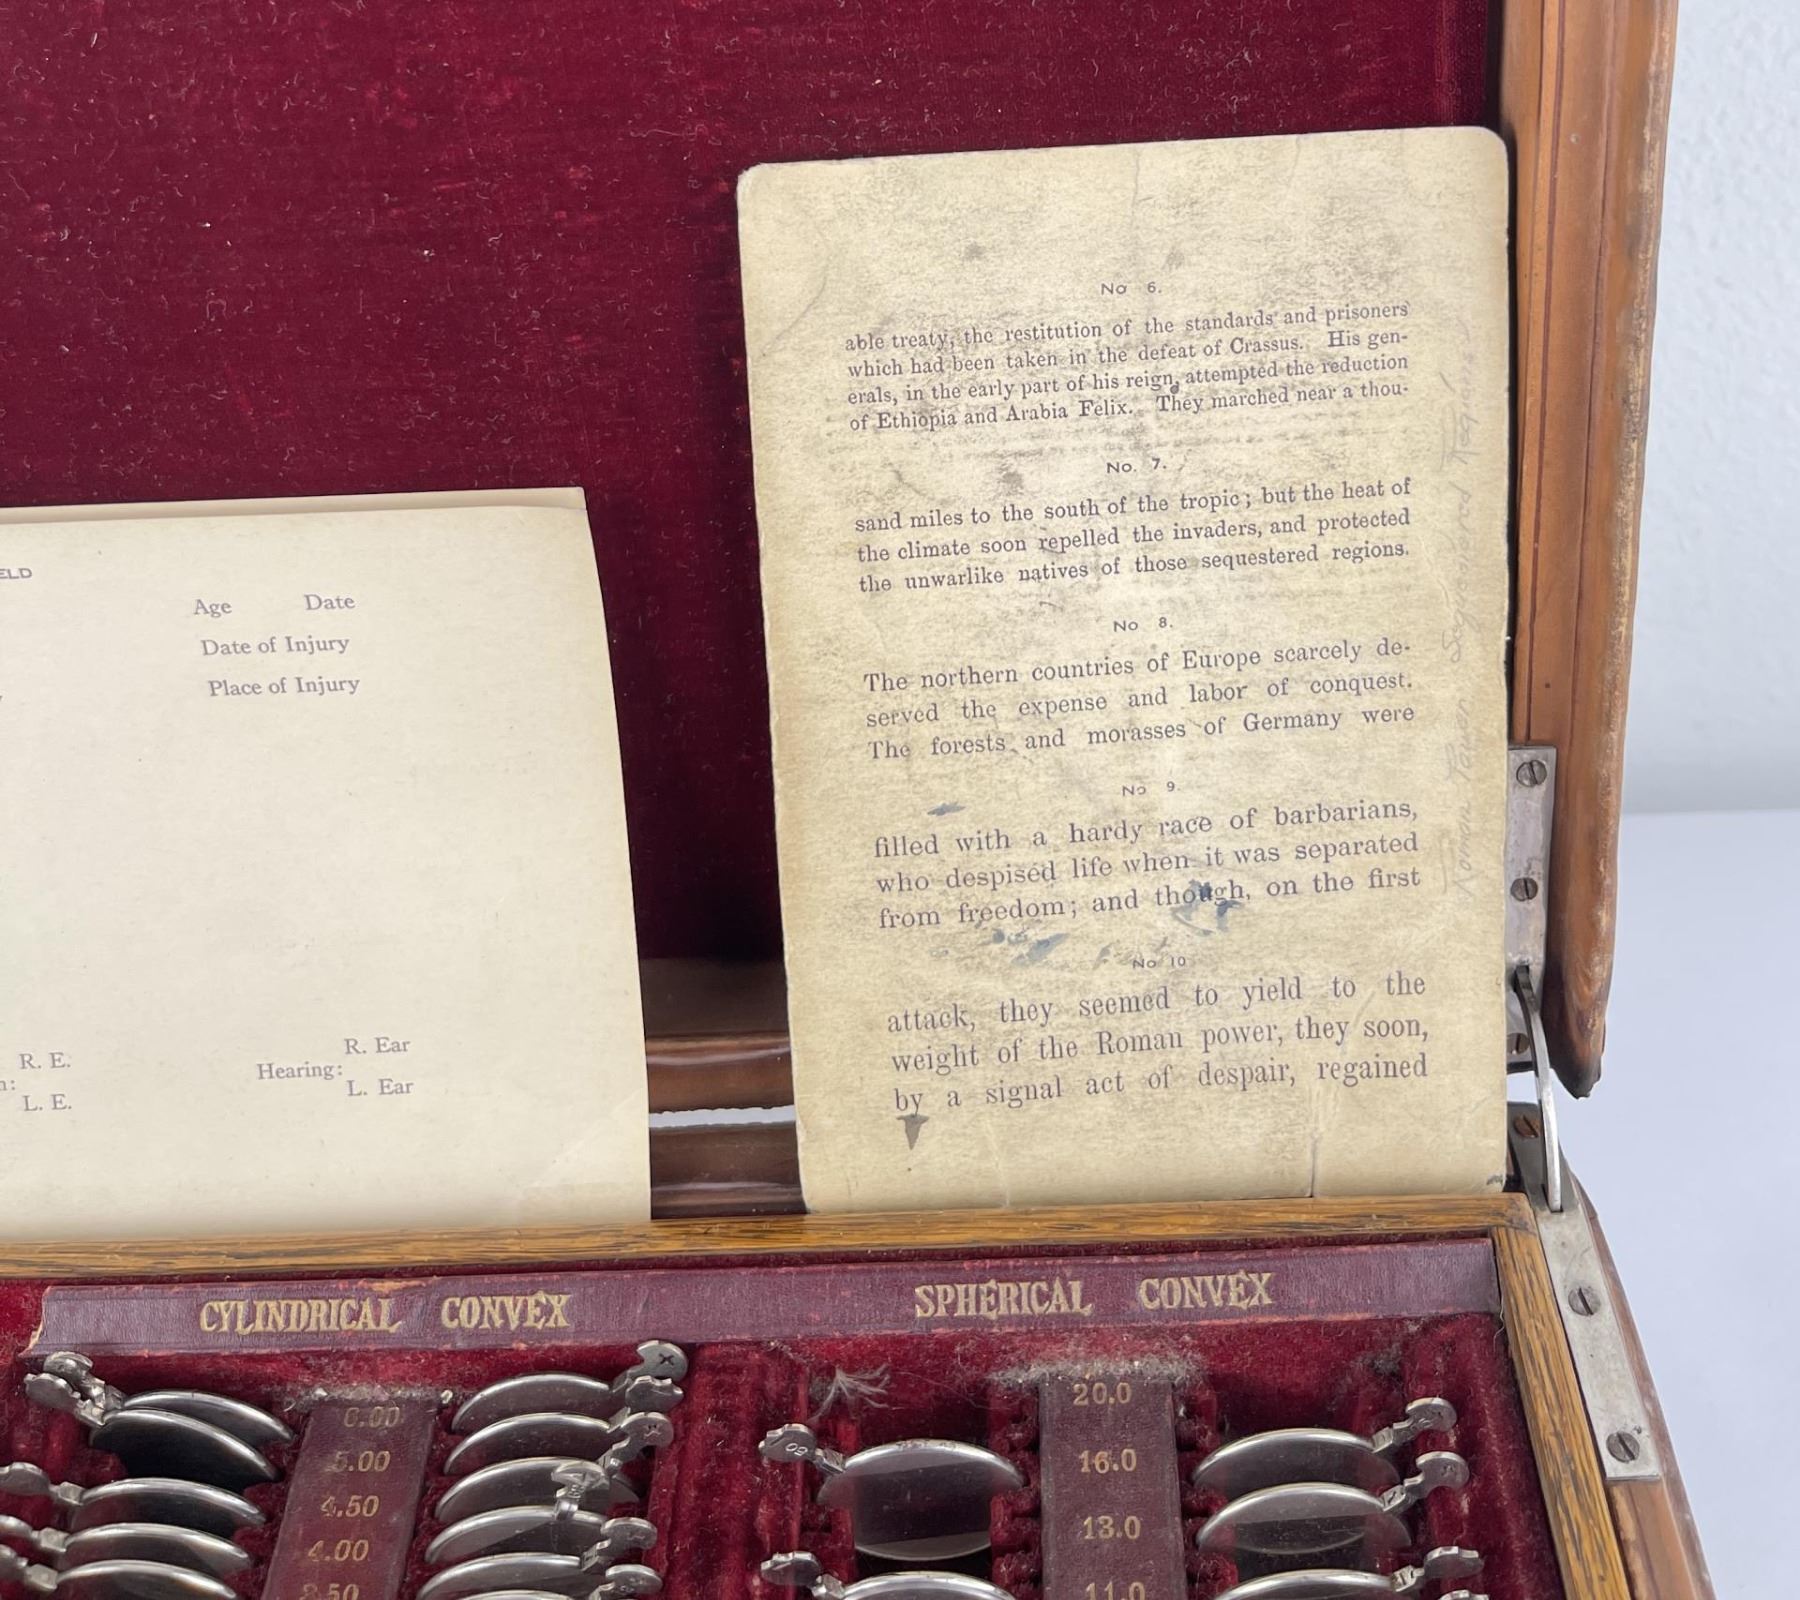 ELD
Age Date
Date of Injury
Place of Injury
R. E.
L. E.
Hearing:
R. Ear
L. Ear
No 6.
able treaty, the restitution of the standards and prisoners
which had been taken in the defeat of Crassus. His gen-
erals, in the early part of his reign, attempted the reduction
of Ethiopia and Arabia Felix. They marched near a thou-
No. 7.
sand miles to the south of the tropic; but the heat of
the climate soon repelled the invaders, and protected
the unwarlike natives of those sequestered regions.
No 8.
The northern countries of Europe scarcely de-
served the expense and labor of conquest.
The forests and morasses of Germany were
No 9.
filled with a hardy race of barbarians,
who despised life when it was separated
from freedom; and though, on the first
No 10
attack, they seemed to yield to the
weight of the Roman power, they soon,
by a signal act of despair, regained
Roman Power
Regions
CYLINDRICAL CONVEX
SPHERICAL CONVEX
6.00
5.00
4.50
4.00
3.50
20.0
16.0
13.0
11.0